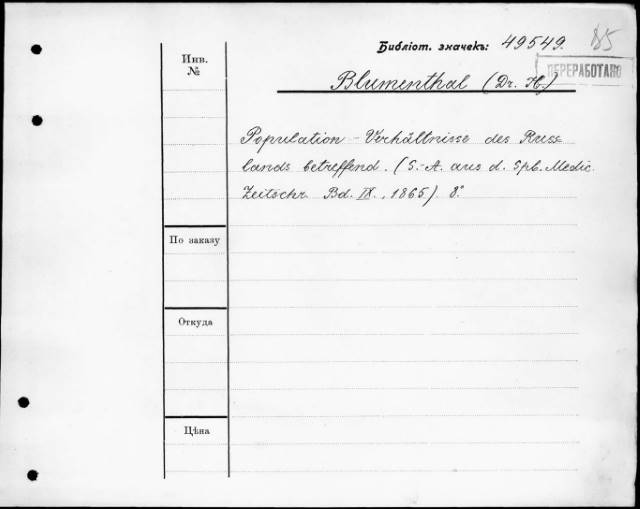 Библіот. значекъ: 49549. 85
ПЕРЕРАБОТАНО
Инв.
№
Blumenthal (Dr. H.)
Population-Verhältnisse des Russ
lands betreffend. (S.-A. aus d. Spb. Medic.
Zeitschr. Bd. IX., 1865). 8°.
По заказу
Откуда
Цѣна